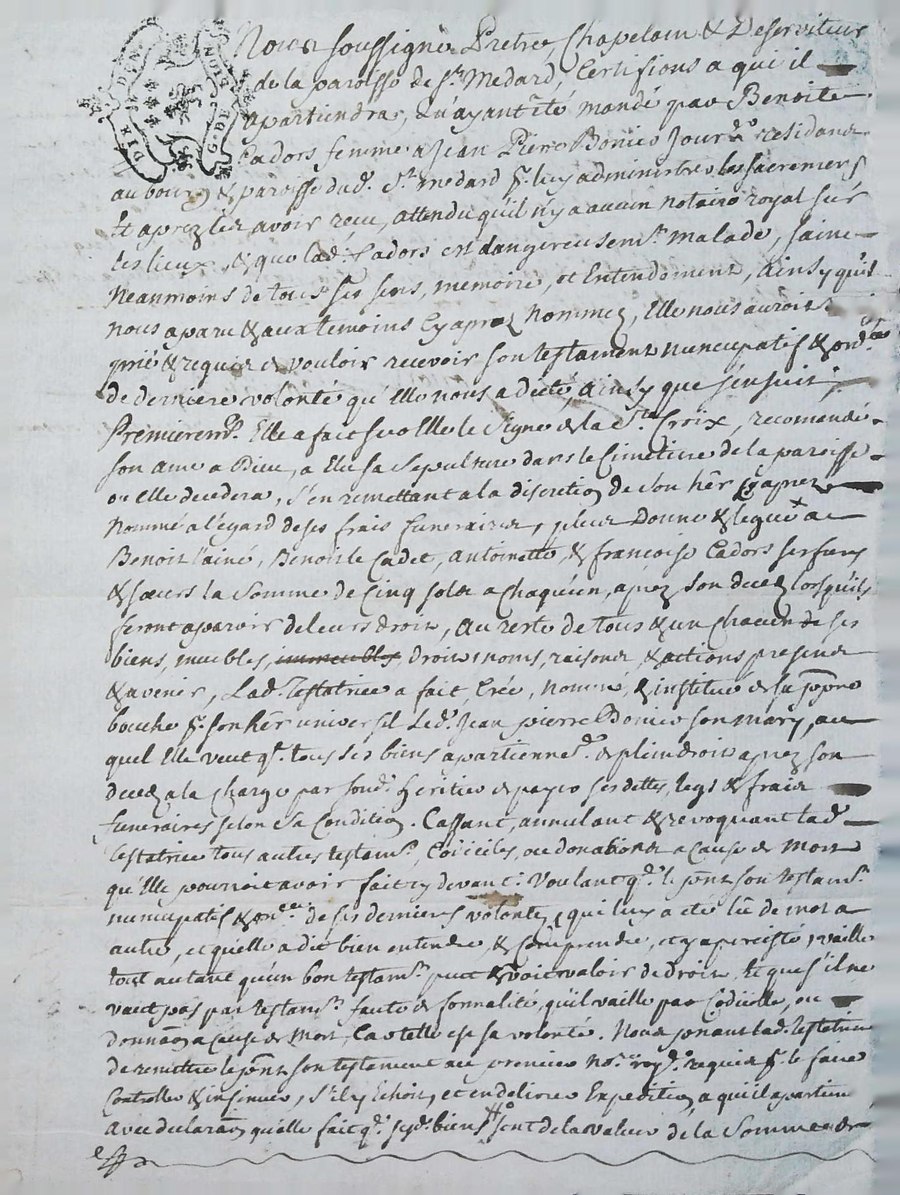 Nous soussigné Pretre, Chapelain & Deserviteur
de la paroisse de St. Medard, Certifions a qui il
apartiendra, qu'ayant été mandé par Benoite
Cadors femme a Jean Pierre Bonico Jour.er residans
au bourg & paroisse dud. St. medard pr. luy administrer les sacremens
Et aprez les avoir recu, attendu qu'il n'y a aucun notaire royal sur
les lieux, & que lad. Cadors est dangereusemt. malade, saine
neanmoins de tous ses sens, memoire, et Entendement, ainsy qu'il
nous a paru & aux temoins Cy aprez nommez, Elle nous auroit
prié & requis de vouloir recevoir son testament nuncupatif &
de derniere volonté qu'Elle nous a dicté, ainsy que s'ensuit;
Premieremt. Elle a fait sur Elle le Signe de la Ste. Croix, recomandé
son ame a Dieu, a Elu sa Sepulture dans le Cimetiere de la paroisse
ou elle decedera, S'en remettant a la discretion de son hér Cy aprez
nommé a l'égard de ses frais funeraires, plus Donne & legue a
Benoit l'ainé, Benoit le Cadet, antoinette & francoise Cadors ses freres
& sœurs la Somme de Cinq sols a chaquun, aprez son decez lorsqu'ils
feront aparoir de leurs droits, au reste de tous & un chacun de ses
biens, meubles, immeubles, droits, noms, raisons, & actions presens
& avenir, Lad. testatrice a fait, Créé, nommé, & institué de sa ppre
bouche pr. son hér universel Led. Jean pierre Bonico son mary, au
quel Elle veut qe. tous ses biens apartienne.t de plein droit aprez son
decez a la charge par sond. Heritier de payer ses dettes, legs & frais
funeraires selon sa Condition. Cassant, annulant & revoquant lad.
testatrice tous autres testamts. Codiciles, ou donations a cause de Mort
qu'Elle pourroit avoir fait cy devant. Voulant qe. le pnt son testamt.
nuncupatif & de ses dernieres volontez qui luy a eté lû de mot a
autre, et quelle a dit bien entendre, & Comprendre, et y a percisté, vaille
tout autant qu'un bon testamt. peut & doit valoir de droit, Et que s'il ne
vaut pas par testamt. faute de formalité, qu'il vaille par Codicille, ou
donnaon a cause de Mort, Car telle est sa volonté. Nous priant lad. testatrice
de remettre le pnt son testament au premier nore. royal. requis pr. le faire
Controller & insinuer, S'il y Echoit, et en delivrer Expedition a qu'il apartien
avec declaraon quelle fait qe. sesd. biens sont de la valeur de la Somme de